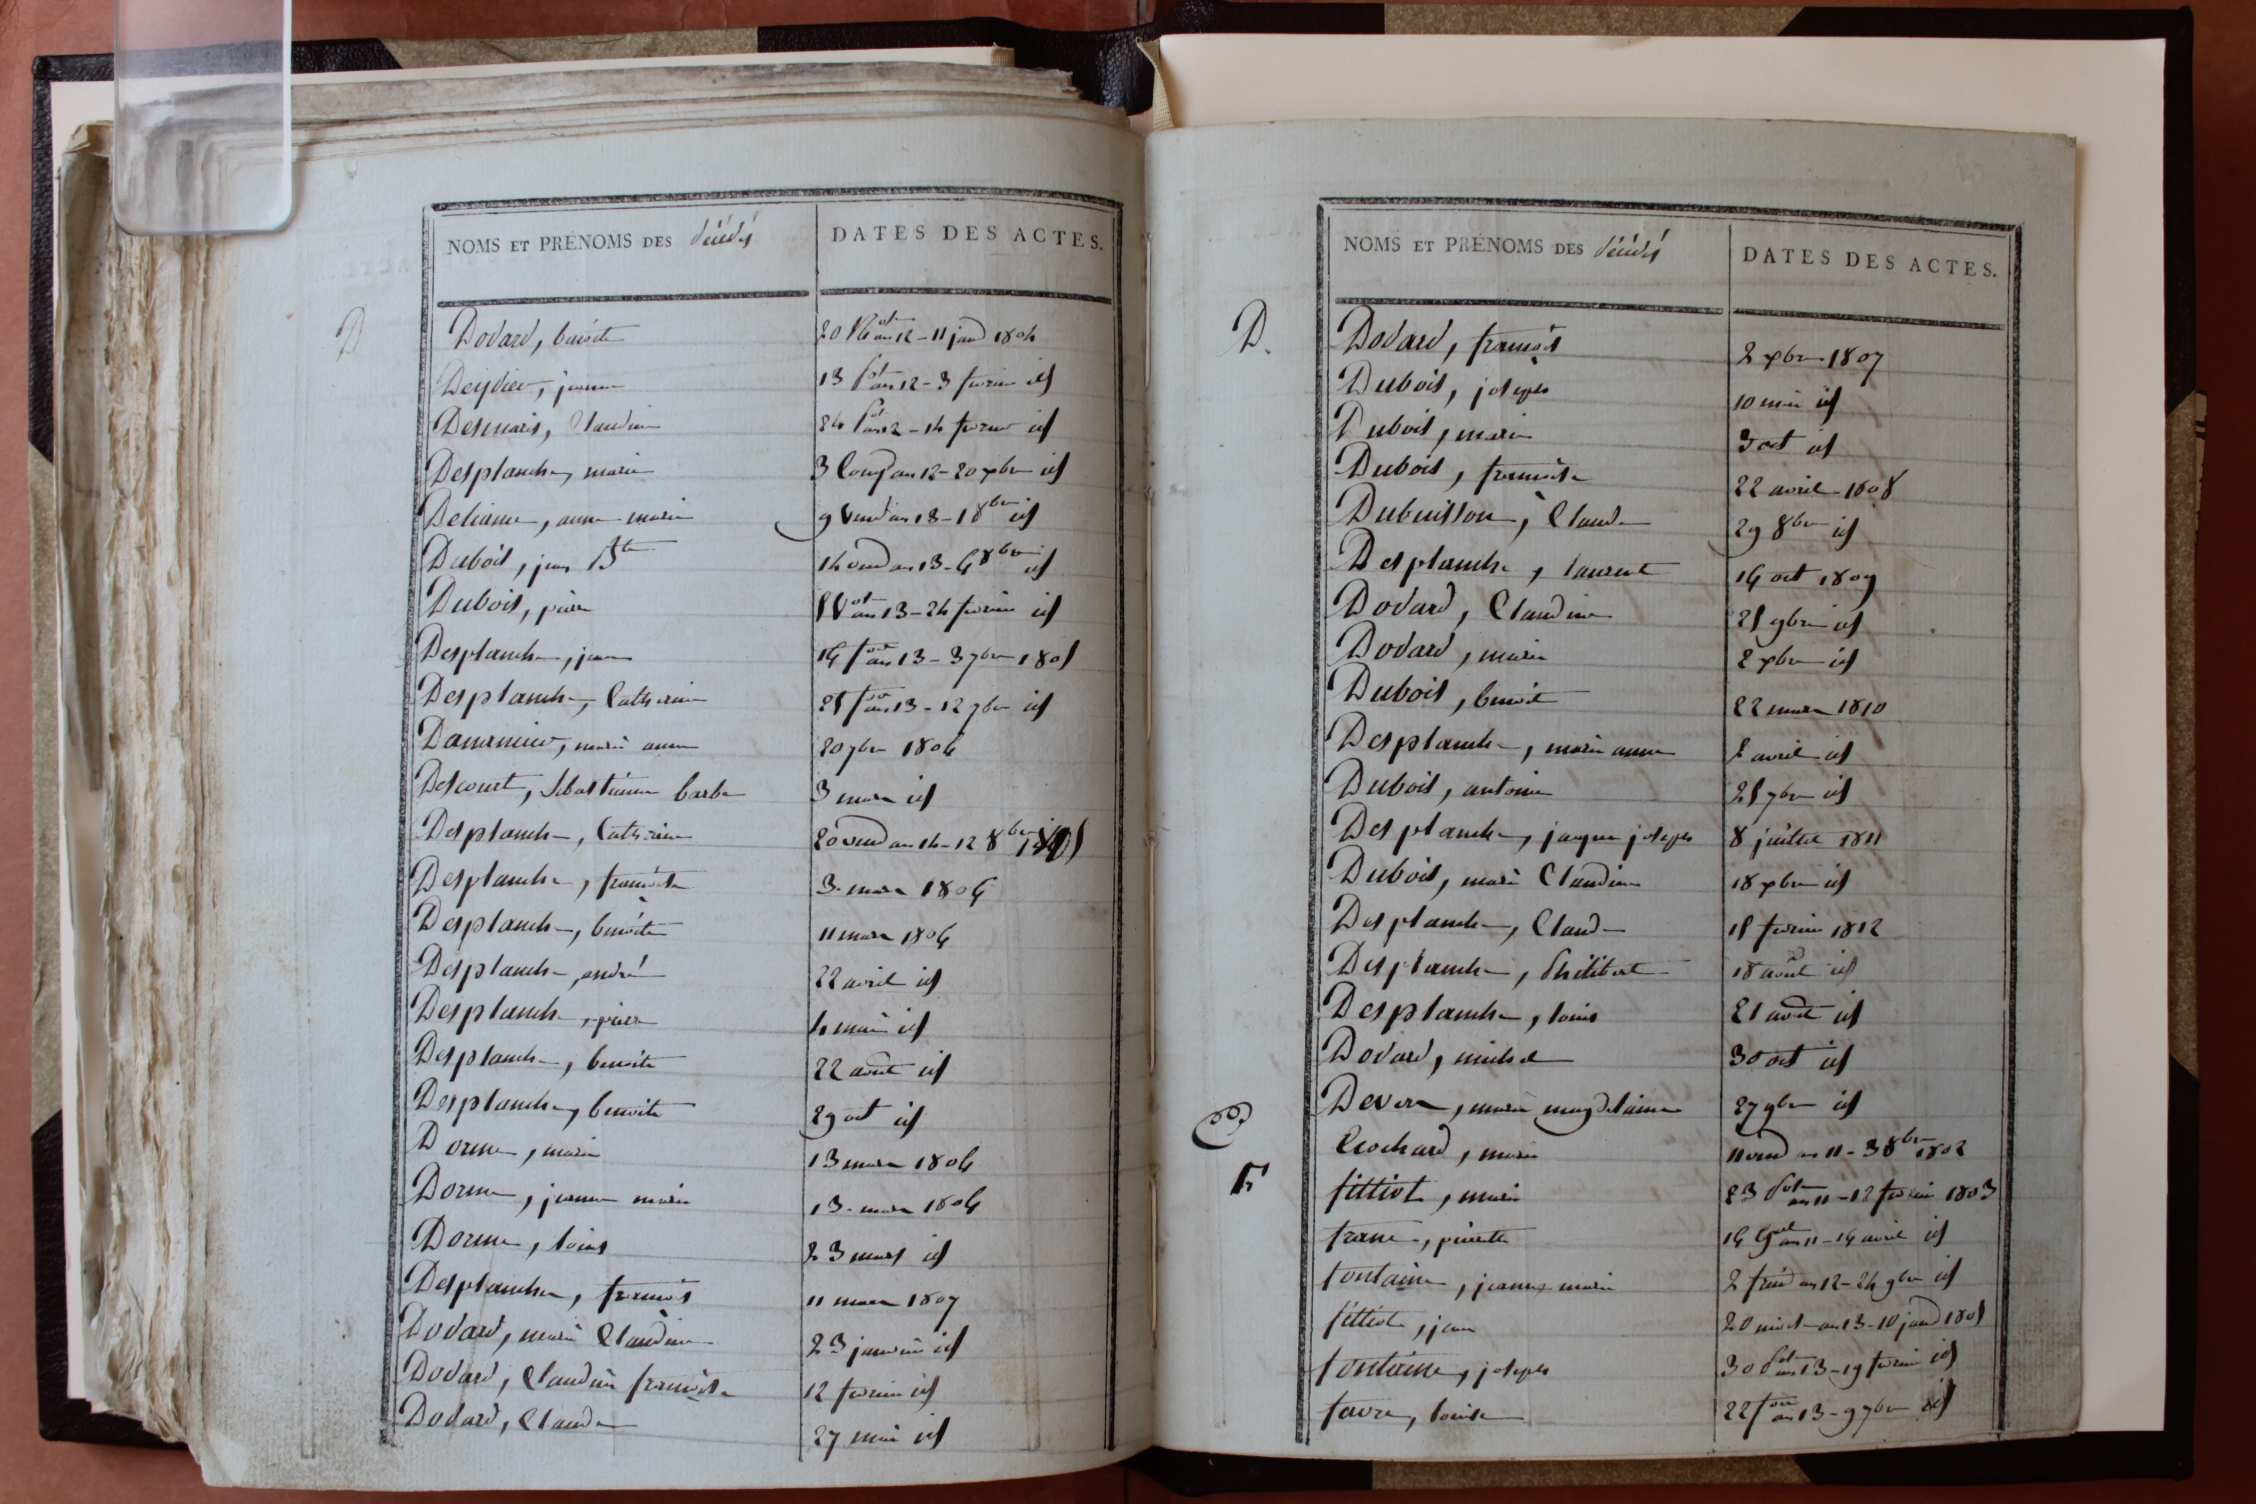 NOMS ET PRÉNOMS DES décédés
DATES DES ACTES.
D
Dodard, benoite
20 Niv ot an 12 - 11 janv 1804
Deydier, jeanne
13 P ot an 12 - 3 fevrier id
Desmaris, Claudine
24 P ot an 12 - 14 fevrier id
Desplanche, marie
3 Comp an 12 - 20 7bre id
Deliance, anne marie
9 Vend an 13 - 1 8bre id
Dubois, jean Bte
14 vend an 13 - 6 8bre id
Dubois, pierre
5 V ot an 13 - 24 fevrier id
Desplanche, jean
16 f or an 13 - 3 7bre 1805
Desplanche, Catherine
25 f or an 13 - 12 7bre id
marie anne
20 7bre 1806
Descourt, Sebastienne barbe
3 mars id
Desplanche, Catherine
20 vend an 14 - 12 8bre 1805
Desplanche, francoise
3 mars 1806
Desplanche, benoite
11 mars 1806
Desplanche, andré
22 avril id
Desplanche, pierre
4 mai id
Desplanche, benoite
22 août id
Desplanche, benoite
29 oct id
Dorme, marie
13 mars 1806
Dorme, jeanne marie
13 mars 1806
Dorme, louis
23 mars id
Desplanche, francois
11 mars 1807
Dodard, marie Claudine
23 janvier id
Dodard, Claudine francoise
12 fevrier id
Dodard, Claude
27 mai id
NOMS ET PRÉNOMS DES décédés
DATES DES ACTES.
D.
Dodard, francois
2 xbre 1807
Dubois, joseph
10 mai id
Dubois, marie
3 oct id
Dubois, francoise
22 avril 1808
Dubuisson, Claude
29 8bre id
Desplanche, laurent
16 oct 1809
Dodard, Claudine
25 9bre id
Dodard, marie
2 xbre id
Dubois, benoit
22 mars 1810
Desplanche, marie anne
2 avril id
Dubois, antoine
25 7bre id
Desplanche, jacques joseph
8 juillet 1811
Dubois, marie Claudine
18 xbre id
Desplanche, Claude
15 fevrier 1812
Desplanche, Philibert
18 août id
Desplanche, louis
21 août id
Dodard, michel
30 oct id
Devers, marie magdelaine
27 9bre id
E
Ecochard, marie
11 vend an 11 - 3 8bre 1802
F
fittiot, marie
23 P ot an 11 - 12 fevrier 1803
franc, pierrette
16 G al an 11 - 14 avril id
fontaine, jeanne marie
2 frim an 12 - 24 9bre id
fittiot, jean
20 nivot an 13 - 10 janv 1805
fontaine, joseph
30 P ot an 13 - 19 fevrier id
favre, louise
22 f or an 13 - 9 7bre id